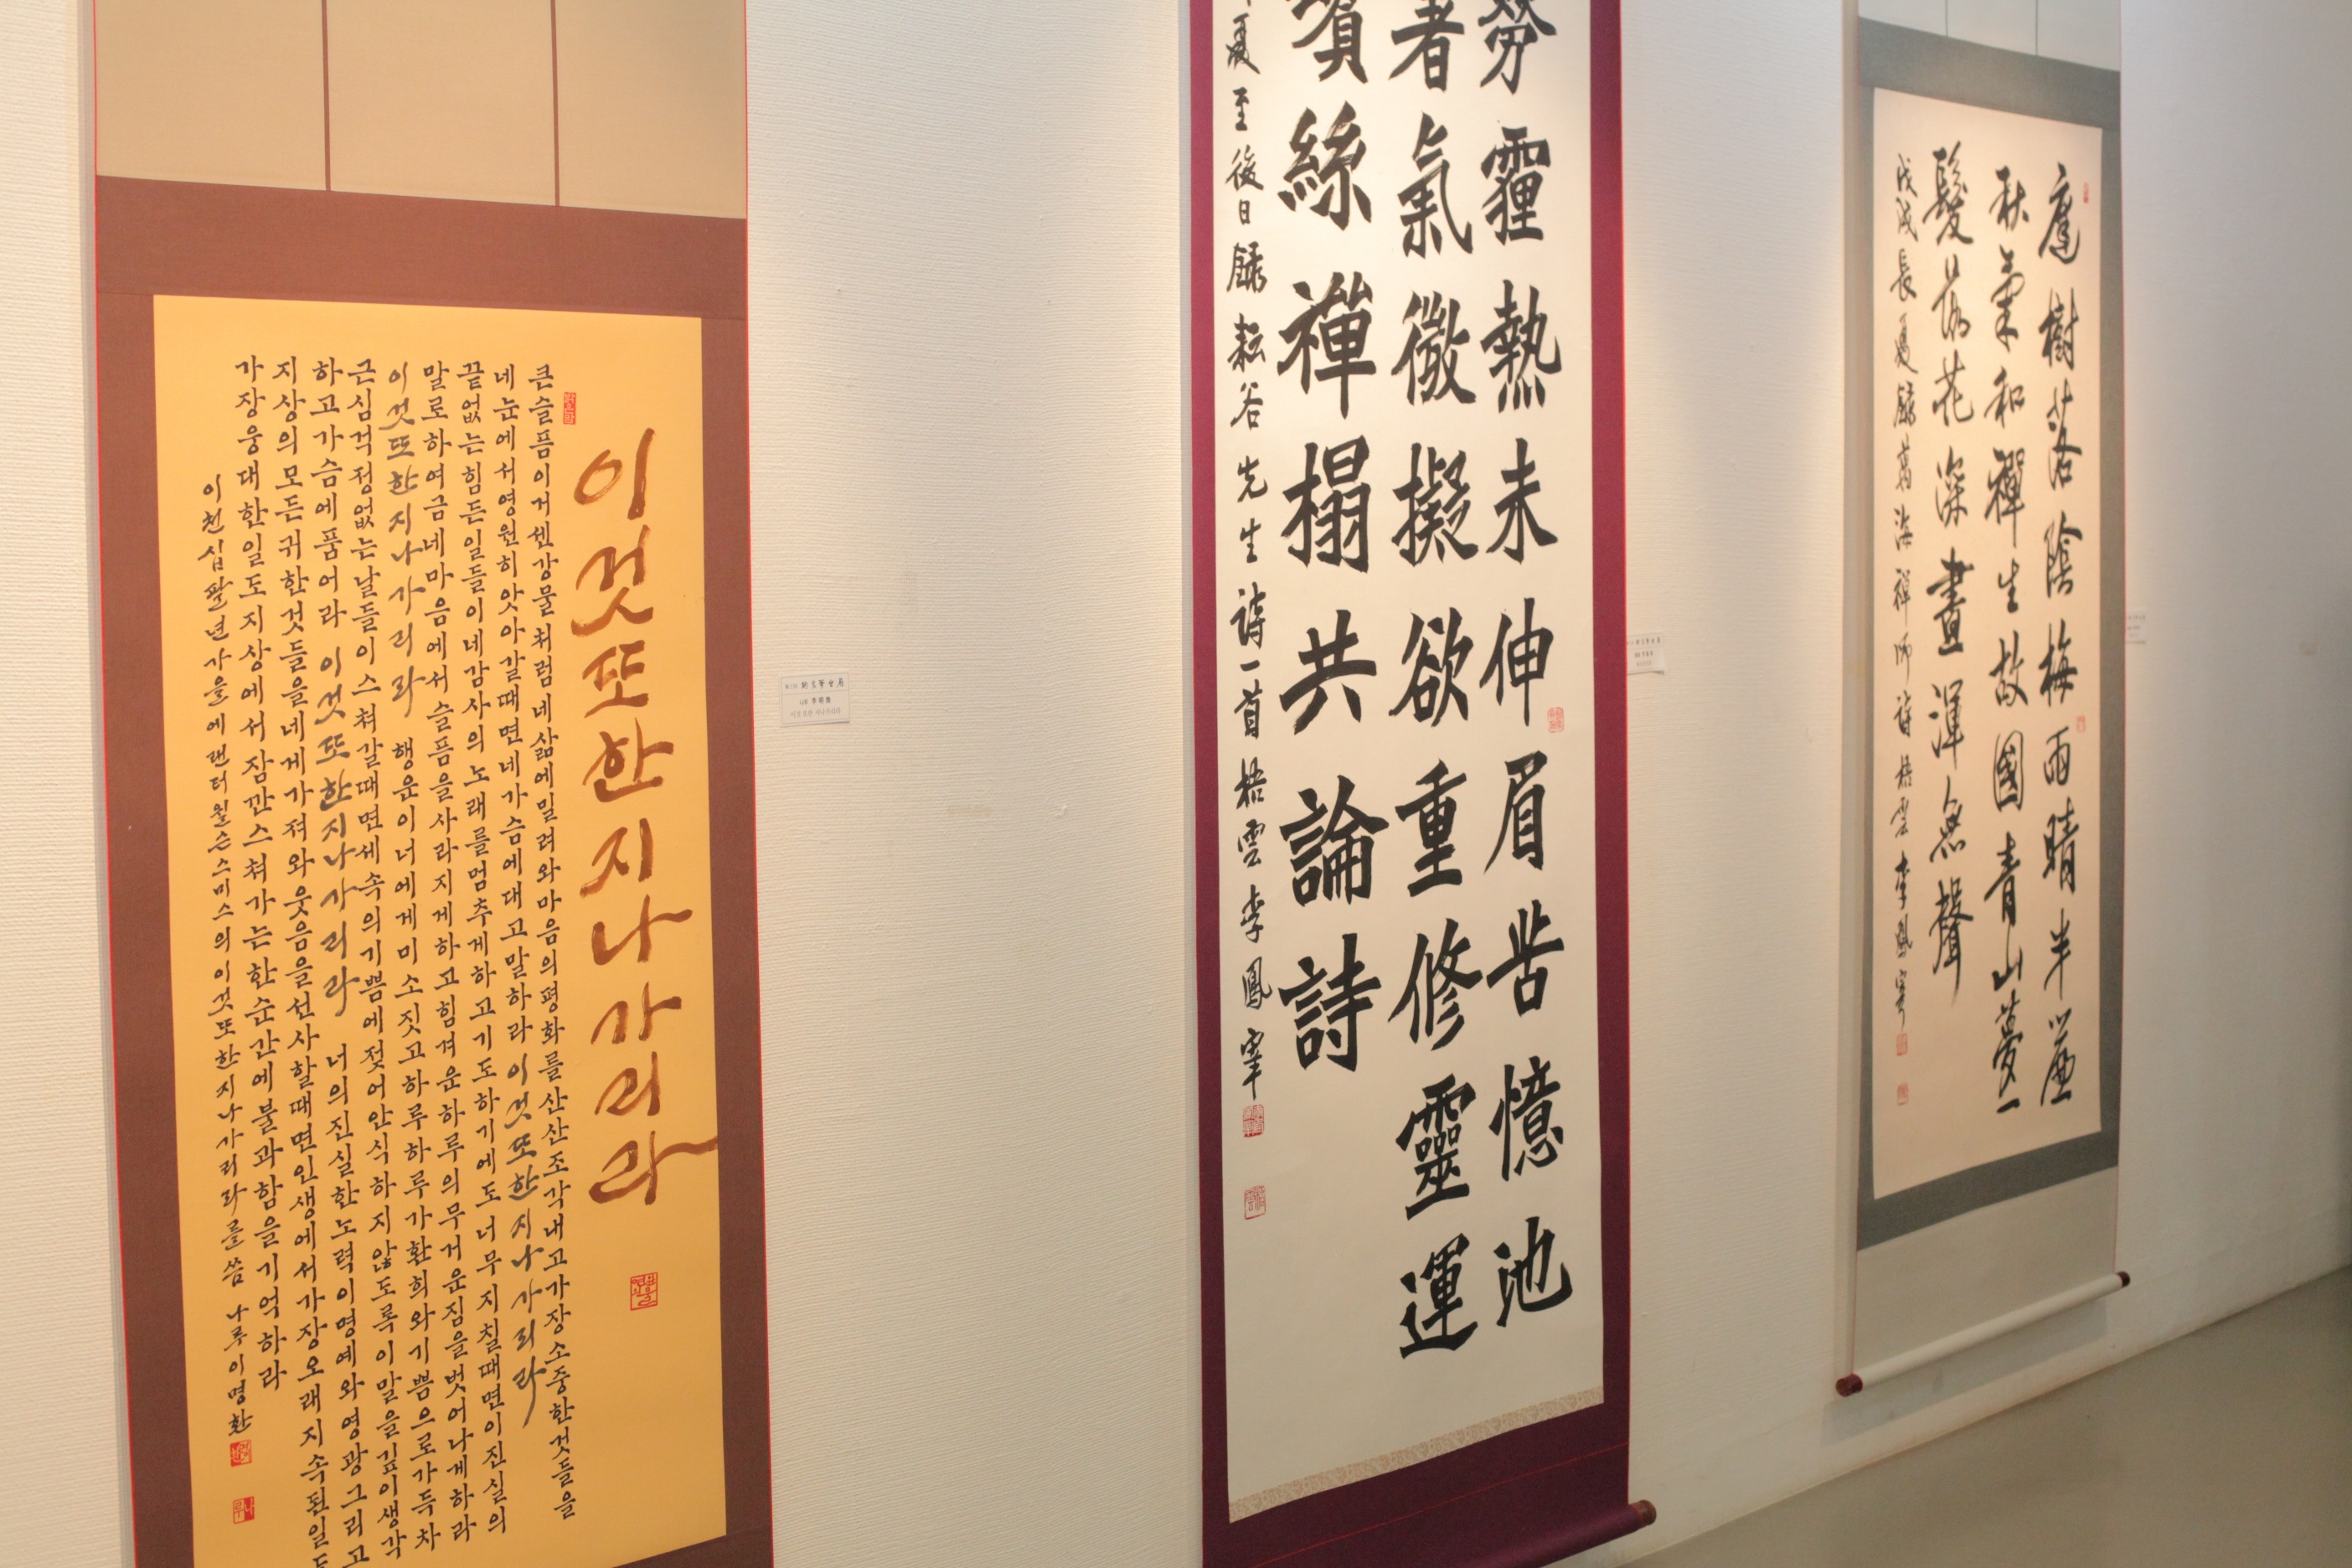 이것또한지나가리라
큰슬픔이거센강물처럼네삶에밀려와마음의평화를산산조각내고가장소중한것들을
네눈에서영원히앗아갈때면네가슴에대고말하라 이것또한지나가리라
끝없는힘든일들이네감사의노래를멈추게하고기도하기에도너무지칠때면이진실의
말로하여금네마음에서슬픔을사라지게하고힘겨운하루의무거운짐을벗어나게하라
이것또한지나가리라 행운이너에게미소짓고하루하루가환희와기쁨으로가득차
근심걱정없는날들이스쳐갈때면세속의기쁨에젖어안식하지않도록이말을깊이생각
하고가슴에품어라 이것또한지나가리라 너의진실한노력이명예와영광그리고
지상의모든귀한것들을네게가져와웃음을선사할때면인생에서가장오래지속된일도
가장웅대한일도지상에서잠깐스쳐가는한순간에불과함을기억하라
이천십팔년가을에랜터윌슨스미스의이것또한지나가리라를씀 나루이명환
霾熱未伸眉苦憶池
著氣微擬欲重修靈運
絲禪榻共論詩
夏至後日錄耘谷先生詩一首 梧雲李鳳宰
庭樹落陰梅雨晴半簾
秋氣和禪生故國青山夢一
髮落花深晝渾無聲
戊戌長夏錄萬海禪師詩 梧雲李鳳宰